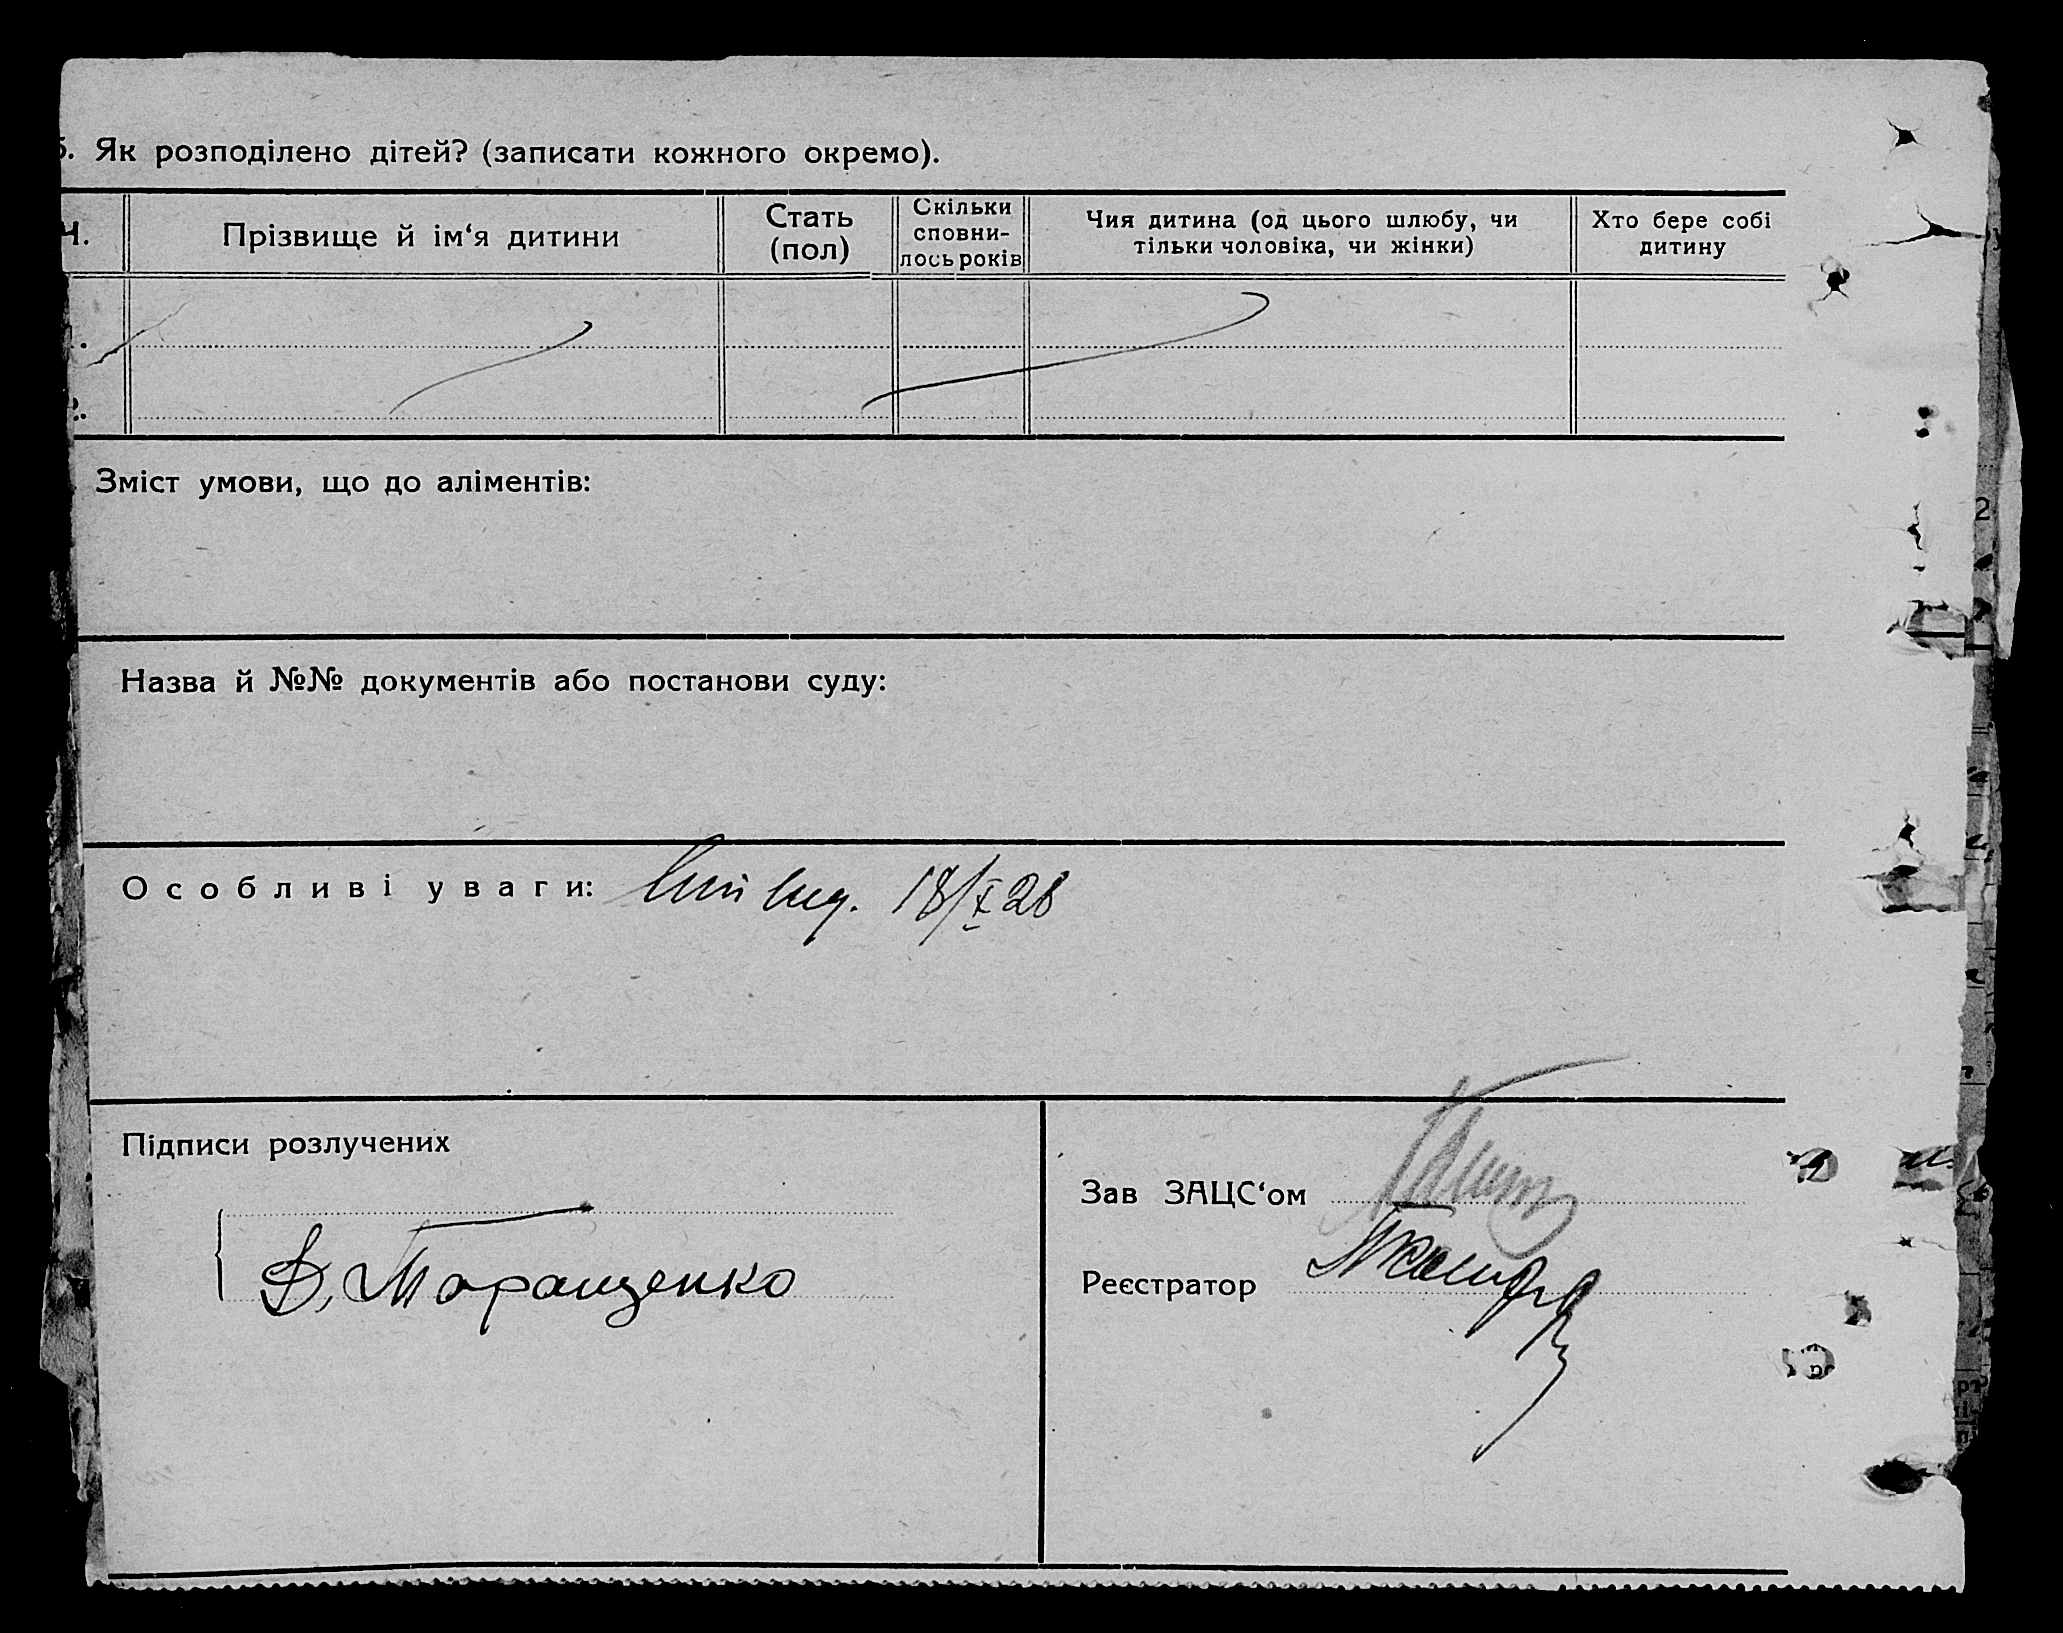 . Як розподілено дітей? (записати кожного окремо).
Ч.
Прізвище й ім‘я дитини
Стать
(пол)
Скільки
сповни-
лось років
Чия дитина (од цього шлюбу, чи
тільки чоловіка, чи жінки)
Хто бере собі
дитину
2.
Зміст умови, що до аліментів:
Назва й №№ документів або постанови суду:
Особливі уваги: 18/X 28
Підписи розлучених
В. Таращенко
Зав ЗАЦС‘ом
Реєстратор